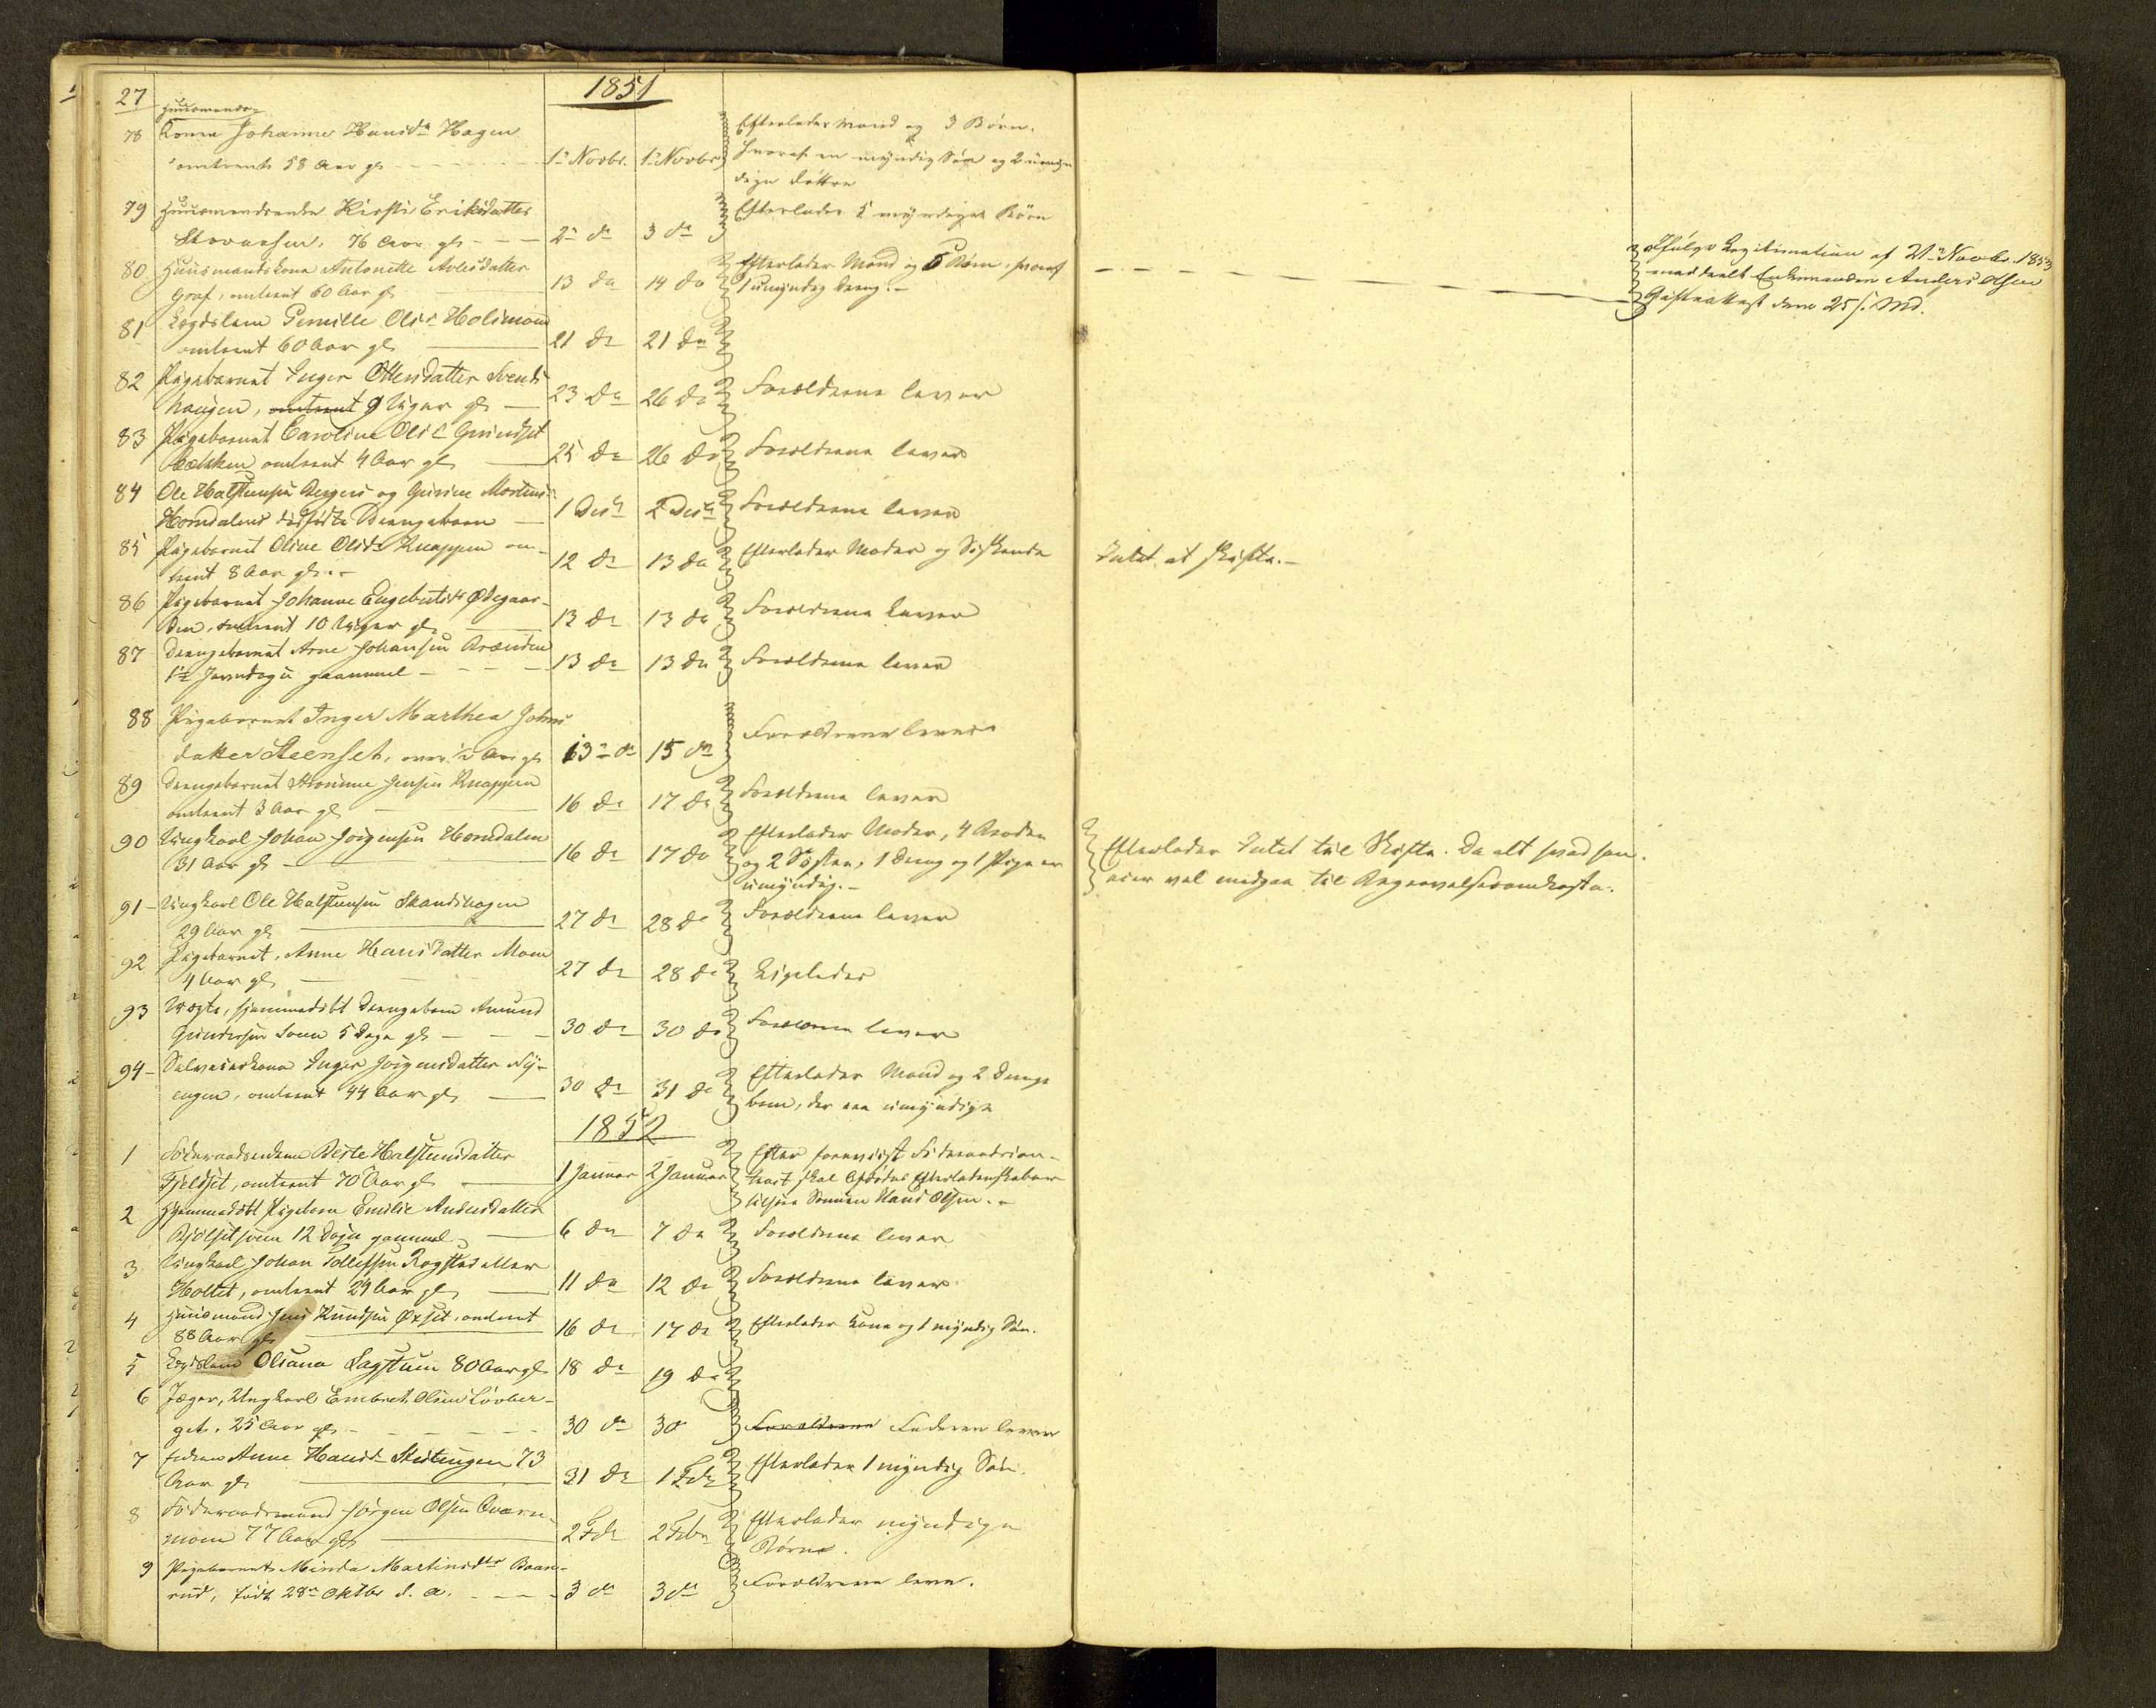 27
1851
78 Huusmands-
Kone Johanne Hansdr Hagen
omtrent 58 Aar gl. 1ste Novbr. 1ste Novbr.
Efterlader Mand og 3 Børn.
hvoraf en myndig Søn og 2 umyn-
dige Døttre
79 Huusmandsenke Kirsti Eriksdatter
76 Aar gl. 2den do 3 do
Efterlader 5 myndige Børn
80 Huusmandskone Antonette Arnesdatter
Graf, omtrent 60 Aar gl. 13 do 14 do
Efterlader Mand og 5 Børn, hvoraf
1 umyndig Dreng.-
Ifølge Legitimation af 21de Novbr. 1853
meddeelt Enkemanden Anders Olsen
Gifteattest den 25 s. Md.
81 Lægdslem Pernille Olsdr Holimoen
omtrent 60 Aar gl. 21 do 21 do
82 Pigebarnet Inger Ottersdatter Svends-
haugen, omtrent 9 Uger gl. 23 do 26 do Forældrene lever
83 Pigebarnet Caroline Olsdr Grundset
bakken omtrent 4 Aar gl. 25 do 26 do Forældrene lever
84 Ole Halstensen Berger og Gurine Mortensd
Horndalens dødfødte Drengebarn 1 Decbr 2 Decbr Forældrene lever
85 Pigebarnet Oline Olsdr Knappen om-
trent 8 Aar gl.- 12 do 13 do Efterlader Moder og Søskende
Intet at skifte.-
86 Pigebarnet Johanne Engebretsdr Ødegaar-
den, omtrent 10 Uger gl. 12 do 13 do Forældrene lever
87 Drengebarnet Arne Johansen Brænden
1½ gammel 13 do 13 do Forældrene lever
88 Pigebarnet Inger Marthea Johns-
datter Steenset, over ½ Aar gl. 13de do 15 do Forældrene lever
89 Drengebarnet Jensen Knappen
omtrent 3 Aar gl. 16 do 17 do Forældrene lever
90 Ungkarl Johan Jörgensen Horndalen
31 Aar gl. 16 do 17 do
Efterlader Moder, 4 Brødre
og 2 Søstre, 1 Dreng og 1 Pige er
umyndig.-
Efterlader Intet til Skifte. Da alt hvad han
eier vel medgaar til Begravelsesomkostn.
91 Ungkarl Ole Halstensen Skandshagen
29 Aar gl. 27 do 28 do Forældrene lever
92 Pigebarnet Anne Hansdatter Moen
4 Aar gl. 27 do 28 do Ligeledes
93 Uægte, hjemmedøbt Drengebarn Amund
Gundersen Loen 5 Dage gl. 30 do 30 do Forældrene lever
94 Selveierkone Inger Jörgensdatter Ny-
engen, omtrent 44 Aar gl. 30 do 31 do
Efterlader Mand og 2 Drenge
børn, der ere umyndige
1852
1 Föderaadsenken Berte Halstensdatter
Fjeldset, omtrent 70 Aar gl. 1 Januar 2 Januar
Efter foreviist Föderaadscon-
tract skal Afdødes Efterladenskaber
tilhøre Sønnen Hans Olsen.-
2 Hjemmedøbt Pigebarn Emilie Andersdatter
12 Dage gammel 6 do 7 do Forældrene lever
3 Ungkarl Johan Tollefsen Rogstad eller
Holtet, omtrent 29 Aar gl. 11 do 12 do Forældrene lever
4 Huusmand Jens Knudsen Øxset, omtrent
88 Aar gl. 16 do 17 do Efterlader Kone og 1 myndig Søn.
5 Lægdslem Oliana Lagstuen 80 Aar gl. 18 do 19 do
6 Jæger, Ungkarl Embret Olsen Lövber-
get, 25 Aar gl. 30 do 30 Forældrene Faderen lever
7 Enken Anne Hansdr 73
Aar gl. 31 do 1 Febr Efterlader 1 myndig Søn.
8 Föderaadsmand Jörgen Olsen Qværn-
moen 77 Aar gl. 2 Febr 2 Febr Efterlader myndige
Børn.
9 Pigebarnet Minda Martinsdtr Baan-
rud, født 28de Oktbr d. a. 3 do 3 do Forældrene leve.